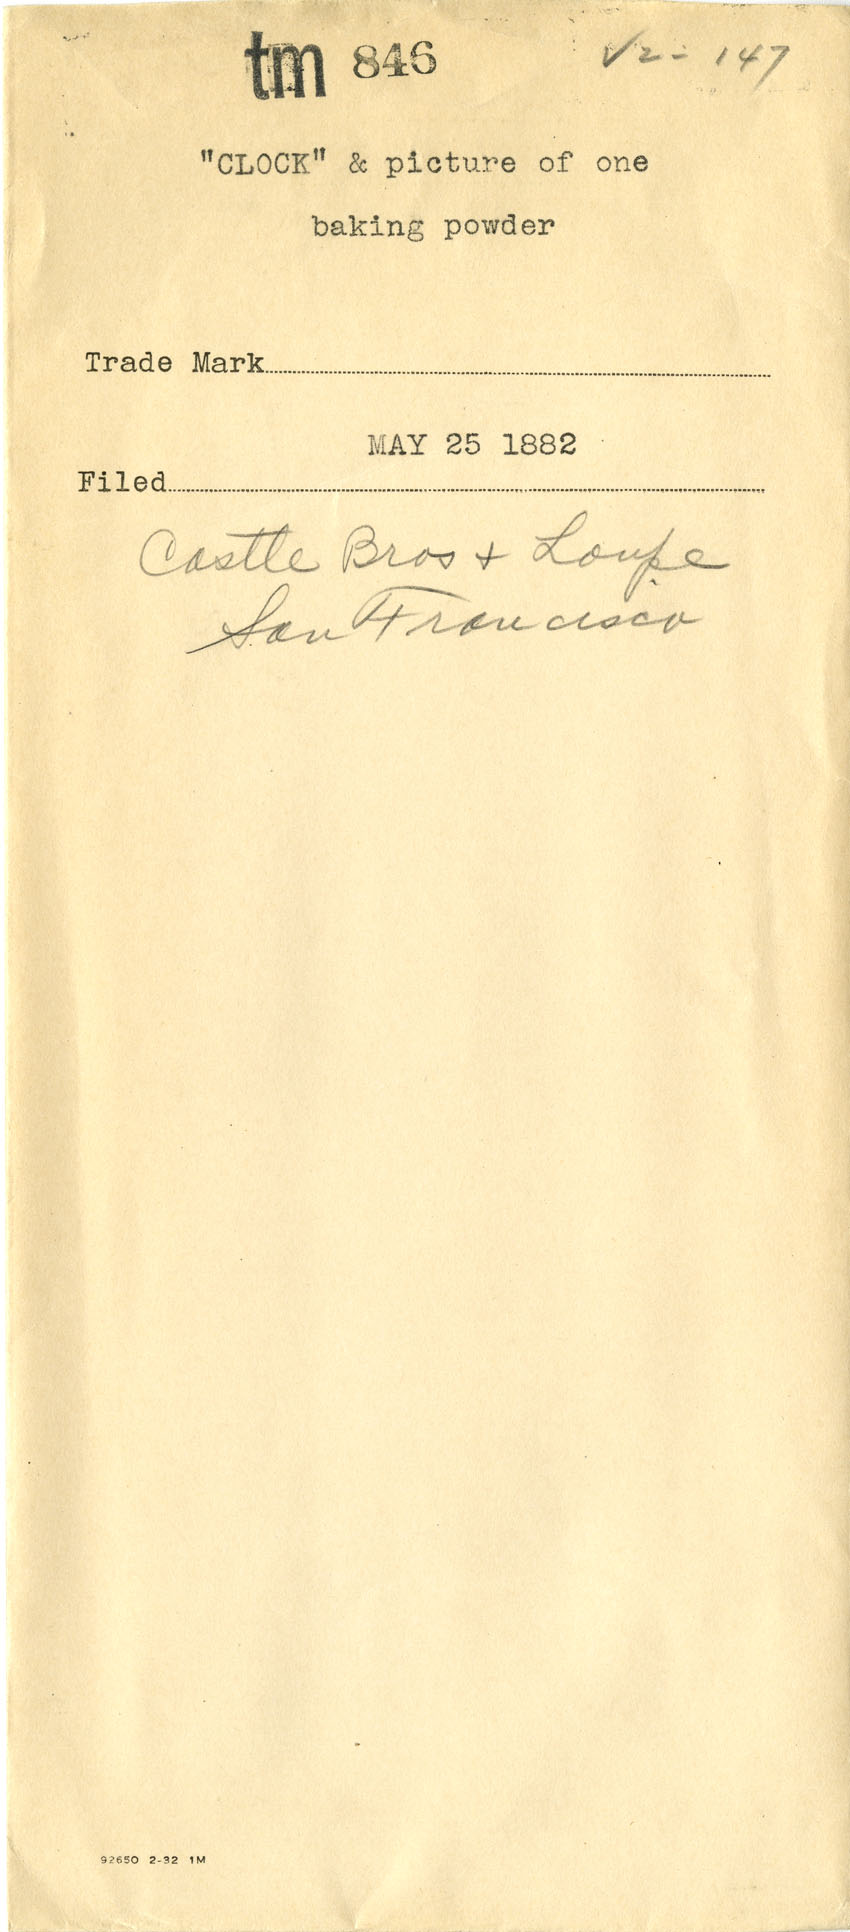 tm 846 V2-147
"CLOCK" & picture of one
baking powder
Trade Mark
MAY 25 1882
Filed
Castle Bros + Loupe
San Francisco
92650 2-32 1M